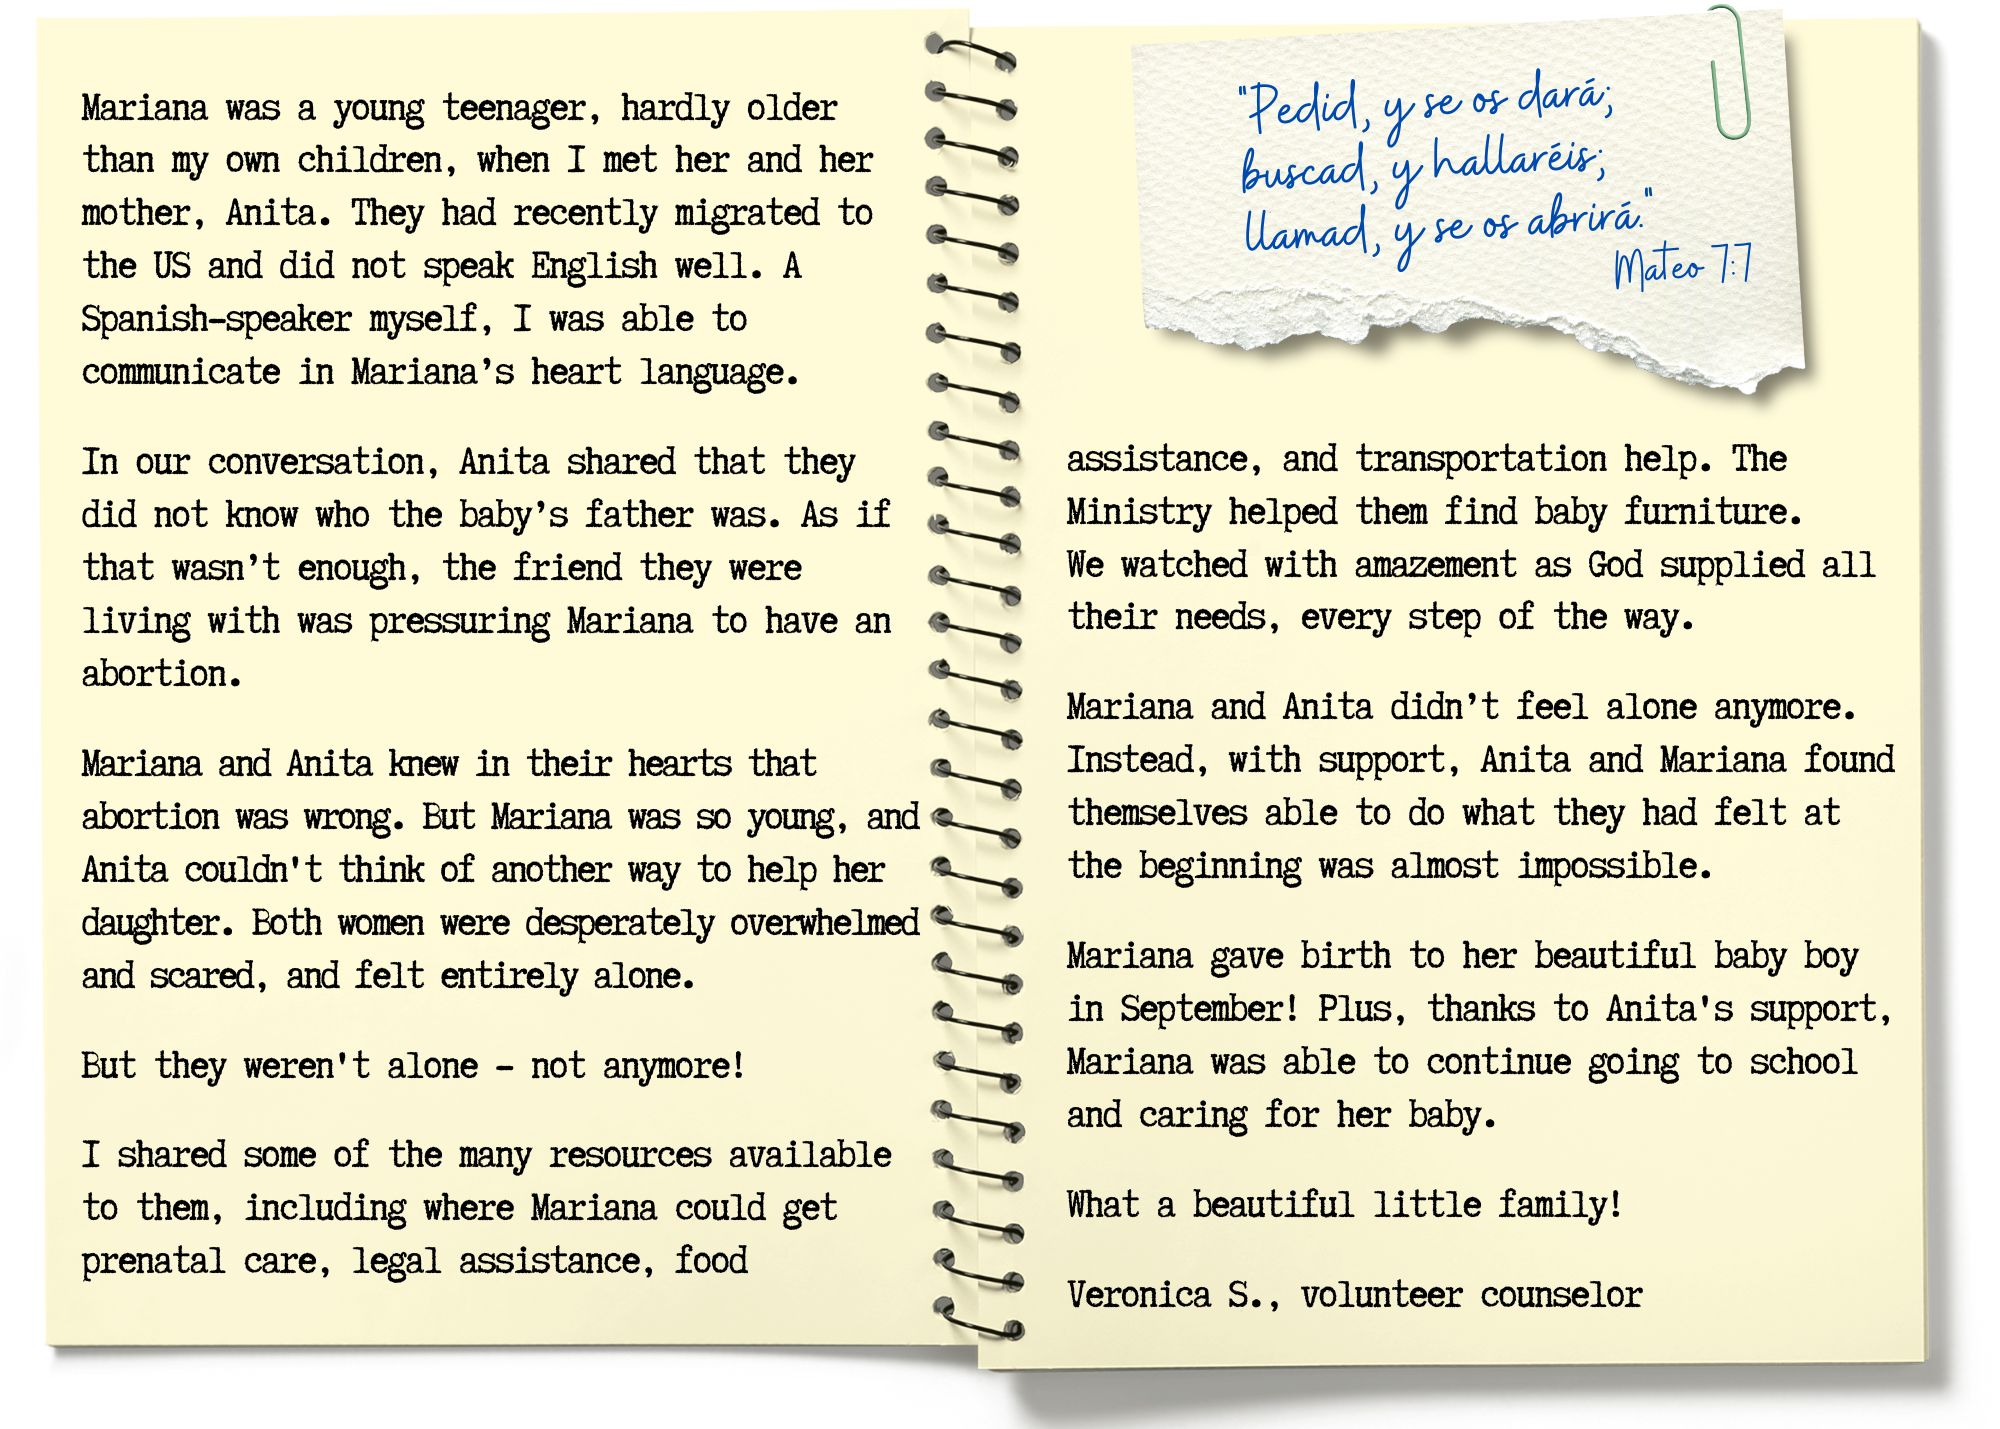 Mariana was a young teenager, hardly older
than my own children, when I met her and her
mother, Anita. They had recently migrated to
the US and did not speak English well. A
Spanish-speaker myself, I was able to
communicate in Mariana’s heart language.
In our conversation, Anita shared that they
did not know who the baby’s father was. As if
that wasn’t enough, the friend they were
living with was pressuring Mariana to have an
abortion.
Mariana and Anita knew in their hearts that
abortion was wrong. But Mariana was so young, and
Anita couldn't think of another way to help her
daughter. Both women were desperately overwhelmed
and scared, and felt entirely alone.
But they weren't alone – not anymore!
I shared some of the many resources available
to them, including where Mariana could get
prenatal care, legal assistance, food
"Pedid, y se os dará;
buscad, y hallaréis;
llamad, y se os abrirá."
Mateo 7:7
assistance, and transportation help. The
Ministry helped them find baby furniture.
We watched with amazement as God supplied all
their needs, every step of the way.
Mariana and Anita didn’t feel alone anymore.
Instead, with support, Anita and Mariana found
themselves able to do what they had felt at
the beginning was almost impossible.
Mariana gave birth to her beautiful baby boy
in September! Plus, thanks to Anita's support,
Mariana was able to continue going to school
and caring for her baby.
What a beautiful little family!
Veronica S., volunteer counselor